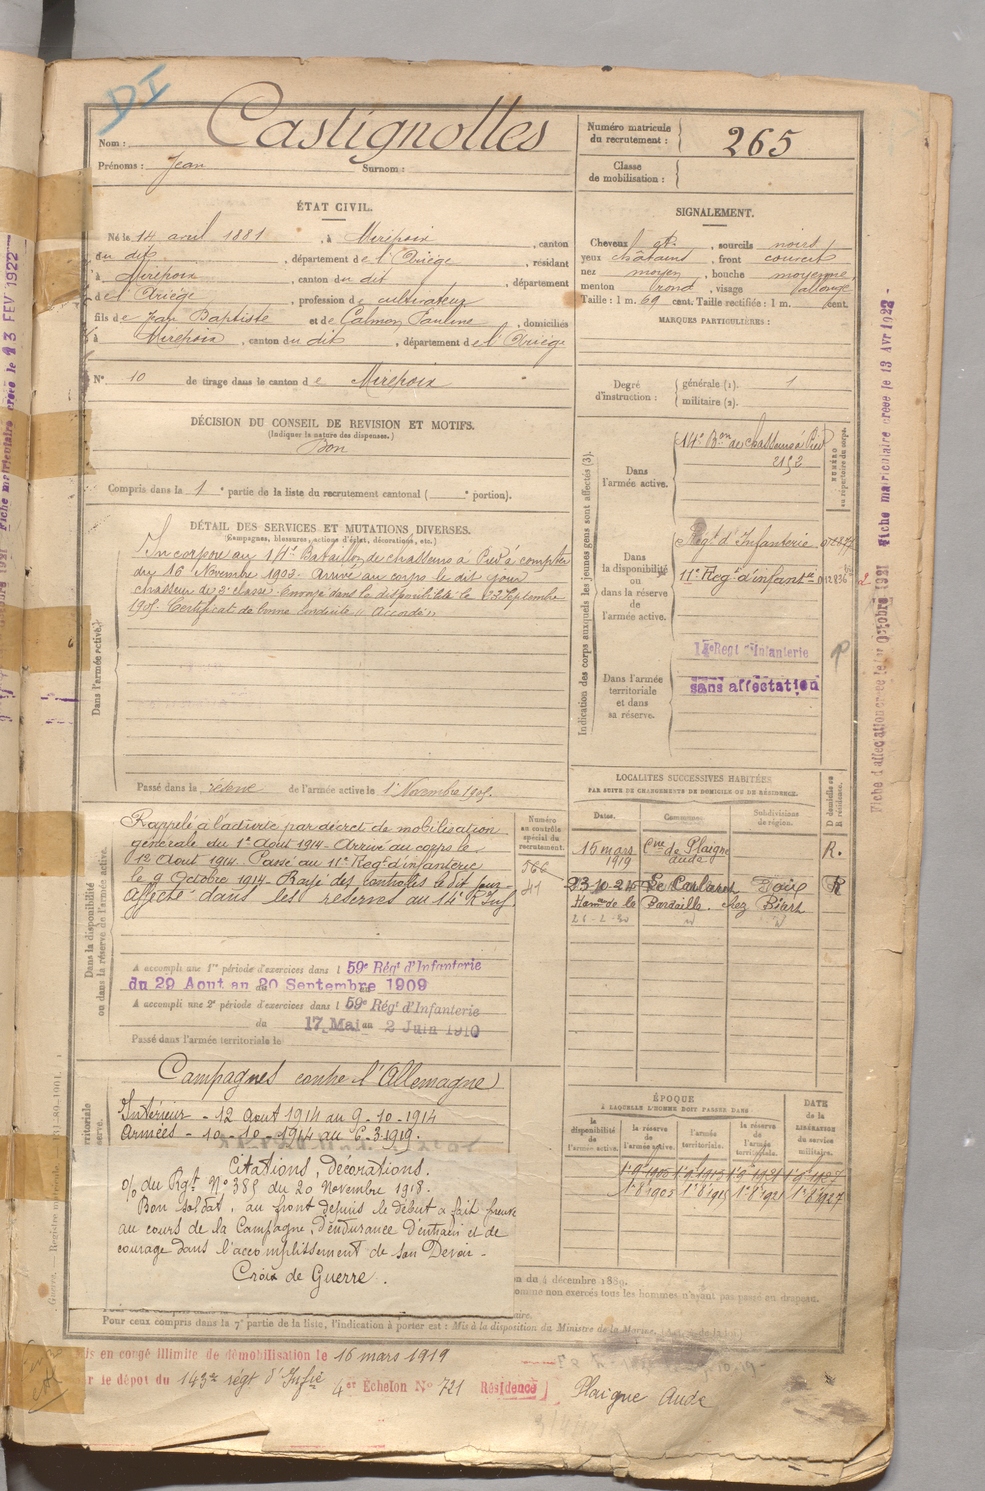 DI
Nom : Castignolles
Prénoms : Jean Surnom :
Numéro matricule du recrutement : 265
Classe de mobilisation :
ÉTAT CIVIL.
Né le 14 avril 1881, à Mirepoix, canton
du dit, département de l'Ariège, résidant
à Mirepoix, canton du dit, département
de l'Ariège, profession de cultivateur
fils de Jean Baptiste et de Calmon Pauline, domiciliés
à Mirepoix, canton du dit, département de l'Ariège
N° 10 de tirage dans le canton de Mirepoix
SIGNALEMENT.
Cheveux ct., sourcils noirs
yeux châtains, front couvert
nez moyen, bouche moyenne
menton rond, visage allongé
Taille : 1 m. 69 cent. Taille rectifiée : 1 m. cent.
MARQUES PARTICULIÈRES :
Degré d'instruction : générale (1). 1
militaire (2).
DÉCISION DU CONSEIL DE REVISION ET MOTIFS.
(Indiquer la nature des dispenses.)
Bon
Compris dans la 1e partie de la liste du recrutement cantonal ( e portion).
DÉTAIL DES SERVICES ET MUTATIONS DIVERSES.
(Campagnes, blessures, actions d'éclat, décorations, etc.)
Dans l'armée active.
Incorporé au 14e Bataillon de chasseurs à Pied à compter
du 16 Novembre 1903. Arrivé au corps le dit jour
chasseur de 2e classe. envoyé dans la disponibilité le 23 Septembre
1905. Certificat de bonne conduite "Accordé"
Passé dans la réserve de l'armée active le 1er Novembre 1905.
Indication des corps auxquels les jeunes gens sont affectés (3).
NUMÉRO au répertoire du corps.
Dans l'armée active.
14e Bon de chasseurs à Pied
2152
Dans la disponibilité ou dans la réserve de l'armée active.
Régt d'Infanterie
11e Regt d'infantie
Dans l'armée territoriale et dans sa réserve.
14e Régt d'Infanterie
sans affectation
Dans la disponibilité ou dans la réserve de l'armée active.
Rappelé à l'activité par décret de mobilisation
générale du 1er Août 1914. Arrivé au corps le
12 Août 1914. Passé au 11e Regt d'infanterie
le 9 Octobre 1914. Rayé des controles le dit jour
Affecté dans les réserves au 14e R Inf
A accompli une 1re période d'exercices dans l 59e Régt d'Infanterie
du 29 Aout au 20 Septembre 1909
A accompli une 2e période d'exercices dans l 59e Régt d'Infanterie
du 17 Mai au 2 Juin 1910
Passé dans l'armée territoriale le
Numéro au contrôle spécial du recrutement.
566
41
LOCALITÉS SUCCESSIVES HABITÉES
PAR SUITE DE CHANGEMENTS DE DOMICILE OU DE RÉSIDENCE.
Dates. Communes. Subdivisions de région. D domicile ou R résidence.
15 mars 1919 Cne de Plaigne aude R.
23-10-24 Le Carlaret Foix R
Hamu de la Bardaille. chez Biart
Campagnes contre l'Allemagne
Intérieur - 12 Aout 1914 au 9-10-1914
Armées - 10-10-1914 au 6-3-1919.
Citations, Décorations.
o/ du Rgt. N° 385 du 20 Novembre 1918.
Bon soldat, au front depuis le début a fait preuve
au cours de la Campagne, d'endurance d'entrain et de
courage dans l'accomplissement de son Devoir.
Croix de Guerre.
ÉPOQUE
À LAQUELLE L'HOMME DOIT PASSER DANS :
la disponibilité de l'armée active. la réserve de l'armée active. l'armée territoriale. la réserve de l'armée territoriale.
DATE de la LIBÉRATION du service militaire.
1er 9 1905 1er 9 1915 1er 9 1921 1er 9 1927
1er 8 1905 1er 8 1915 1er 8 1921 1er 8 1927
n du 4 décembre 1889.
omme non exercés tous les hommes n'ayant pas passé au drapeau.
Pour ceux compris dans la 7e partie de la liste, l'indication à porter est : Mis à la disposition du Ministre de la Marine.
is en congé illimité de démobilisation le 16 mars 1919
r le dépôt du 143e régt d'Infie 4er Échelon N° 721 Résidence Plaigne Aude
Fiche d'affectation créée le 1er Octobre 1921
Fiche matriculaire créée le 13 Avr 1922
Fiche matriculaire créée le 13 FEV 1922